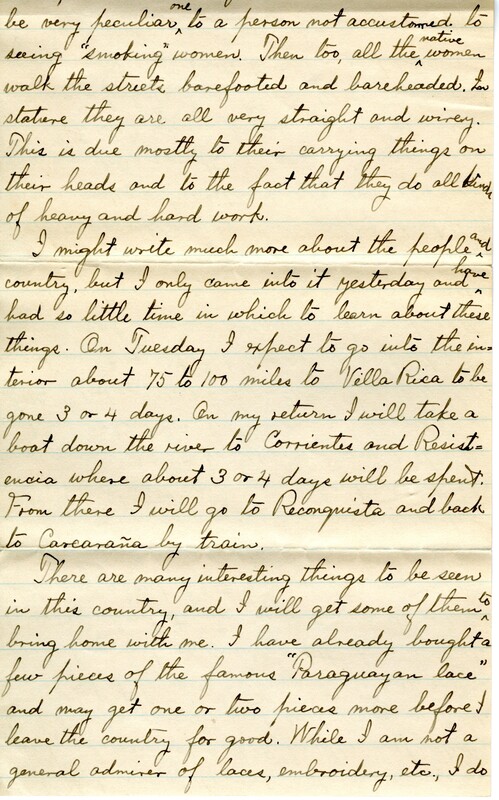 be very peculiar one to a person not accustomed to
seeing "smoking" women. Then too, all the native women
walk the streets barefooted and bareheaded. In
stature they are all very straight and wirey.
This is due mostly to their carrying things on
their heads and to the fact that they do all kinds
of heavy and hard work.
I might write much more about the people and
country, but I only came into it yesterday and have
had so little time in which to learn about these
things. On Tuesday I expect to go into the in=
terior about 75 to 100 miles to Villa Rica to be
gone 3 or 4 days. On my return I will take a
boat down the river to Corrientes and Resist=
encia where about 3 or 4 days will be spent.
From there I will go to Reconquista and back
to Carcaraña by train.
There are many interesting things to be seen
in this country, and I will get some of them to
bring home with me. I have already bought a
few pieces of the famous "Paraguayan lace"
and may get one or two pieces more before I
leave the country for good. While I am not a
general admirer of laces, embroidery, etc., I do